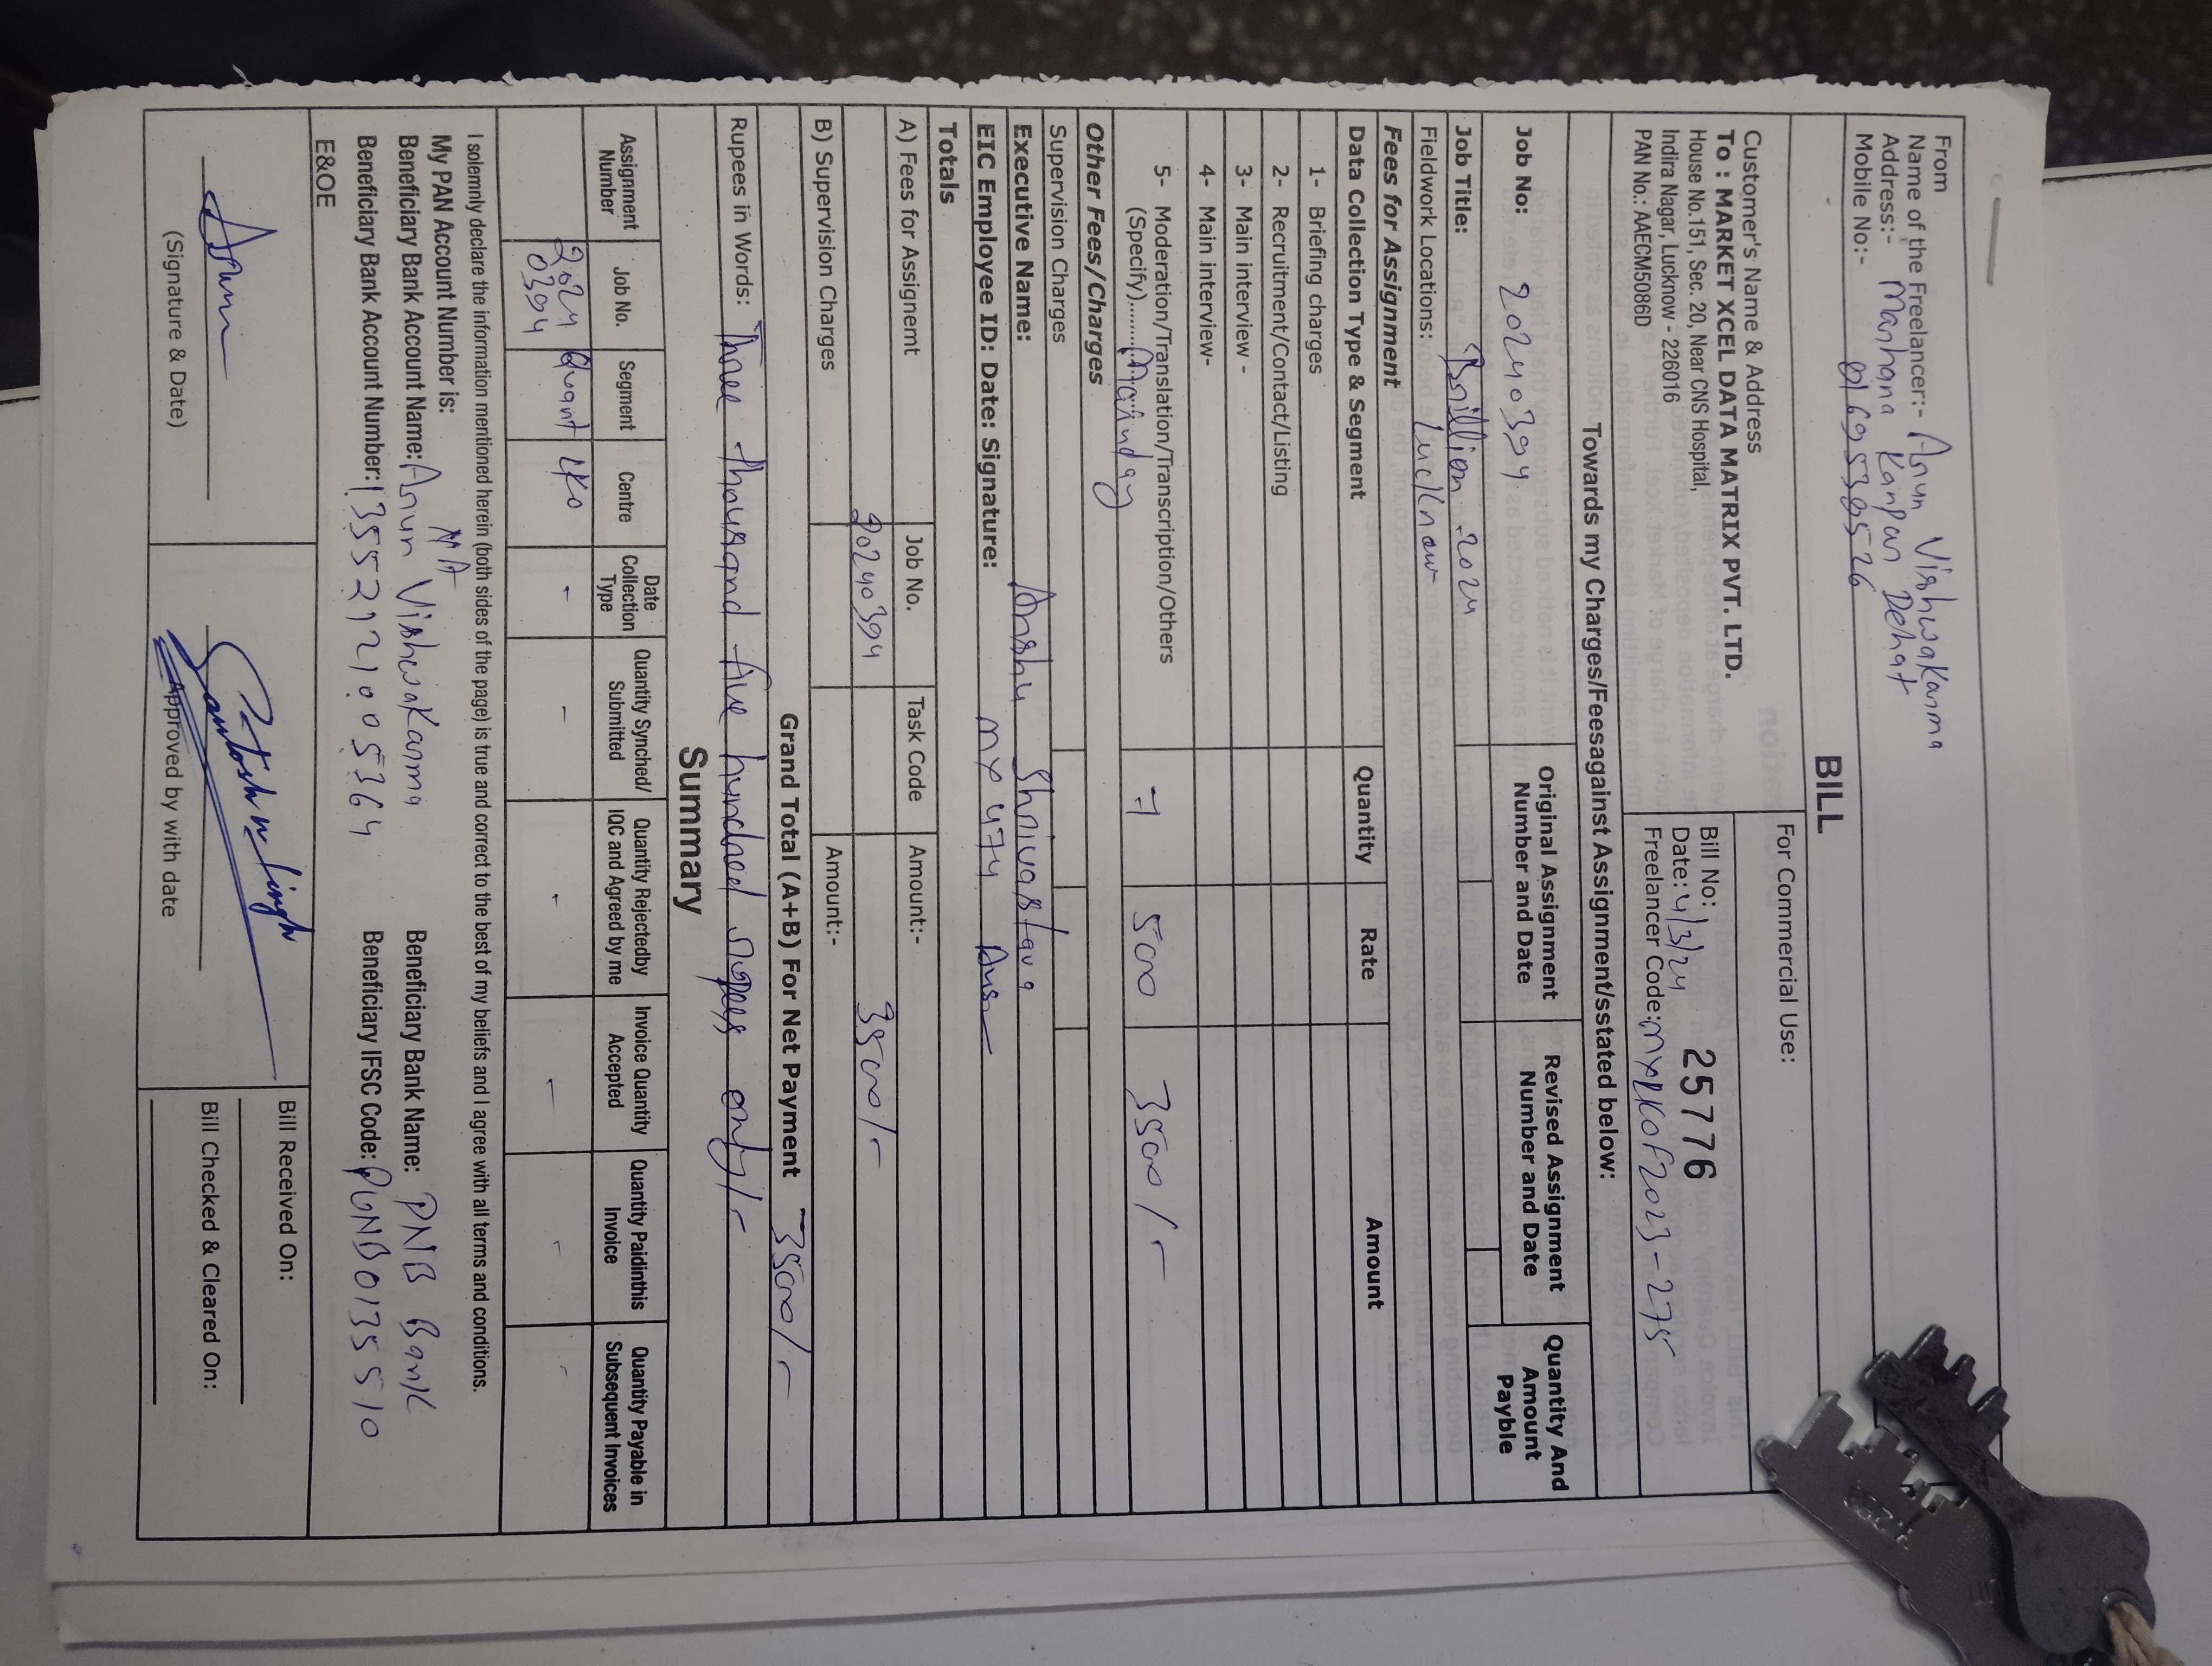 From
Name of the Freelancer:- Arun Vishwakarma
Address:- Manhana Kanpur Dehat
Mobile No:-
BILL
Customer's Name & Address
To : MARKET XCEL DATA MATRIX PVT. LTD.
House No.151, Sec. 20, Near CNS Hospital,
Indira Nagar, Lucknow - 226016
PAN No.: AAECM5086D
For Commercial Use:
Bill No: 25776
Date: 4/3/24
Freelancer Code: MXLKOF2023-275
Towards my Charges/Feesagainst Assignment/sstated below:
Job No: 20240394
Original Assignment Number and Date
Revised Assignment Number and Date
Quantity And Amount Payble
Job Title: Brillion 2024
Fieldwork Locations: Lucknow
Fees for Assignment
Data Collection Type & Segment Quantity Rate Amount
1- Briefing charges
2- Recruitment/Contact/Listing
3- Main interview -
4- Main interview-
5- Moderation/Translation/Transcription/Others
(Specify)......... 7 500 3500/-
Other Fees/Charges
Supervision Charges
Executive Name: Anshu Shrivastava
EIC Employee ID: Date: Signature: MX 474
Totals
A) Fees for Assignemt Job No. Task Code Amount:-
20240394 3500/-
B) Supervision Charges Amount:-
Grand Total (A+B) For Net Payment 3500/-
Rupees in Words: Three thousand five hundred rupees only/-
Summary
Assignment Number Job No. Segment Centre Date Collection Type Quantity Synched/ Submitted Quantity Rejectedby IQC and Agreed by me Invoice Quantity Accepted Quantity Paidinthis Invoice Quantity Payable in Subsequent Invoices
2024 0394 Quant LKO - - - - - -
I solemnly declare the information mentioned herein (both sides of the page) is true and correct to the best of my beliefs and I agree with all terms and conditions.
My PAN Account Number is: NA
Beneficiary Bank Account Name: Arun Vishwakarma Beneficiary Bank Name: PNB Bank
Beneficiary Bank Account Number: 13552121005364 Beneficiary IFSC Code: PUNB0135510
E&OE
Arun
(Signature & Date)
Santosh Kr Singh
Approved by with date
Bill Received On:
Bill Checked & Cleared On: